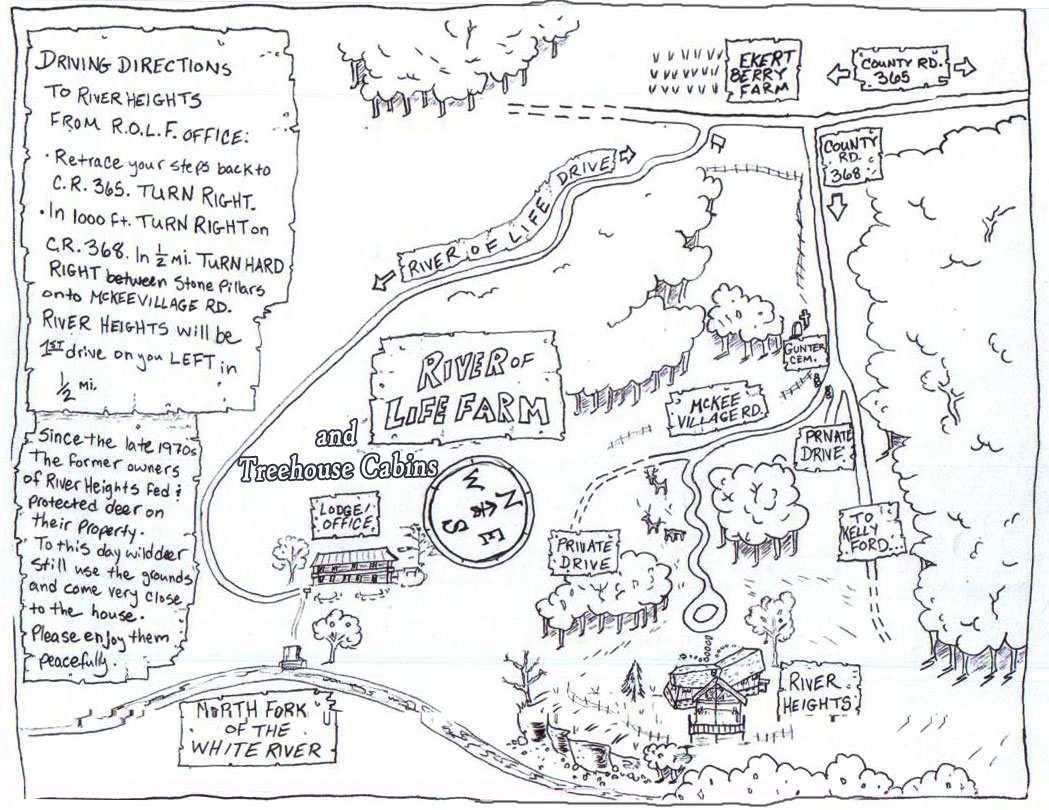 DRIVING DIRECTIONS
TO RIVER HEIGHTS
FROM R.O.L.F. OFFICE:
· Retrace your steps back to
C.R. 365. TURN RIGHT.
· In 1000 ft. TURN RIGHT on
C.R. 368. In ½ mi. TURN HARD
RIGHT between Stone Pillars
onto MCKEE VILLAGE RD.
RIVER HEIGHTS will be
1ST drive on you LEFT in
½ mi.
Since the late 1970s
The former owners
of River Heights Fed &
protected deer on
their Property.
To this day wild deer
still use the grounds
and come very close
to the house.
Please enjoy them
peacefully.
EKERT
BERRY
FARM
COUNTY RD.
365
COUNTY
RD.
368
RIVER OF LIFE DRIVE
RIVER OF
LIFE FARM
and
Treehouse Cabins
GUNTER
CEM.
MCKEE
VILLAGE RD.
PRIVATE
DRIVE
LODGE/
OFFICE
W
N
S
E
PRIVATE
DRIVE
TO
KELLY
FORD
RIVER
HEIGHTS
NORTH FORK
OF THE
WHITE RIVER